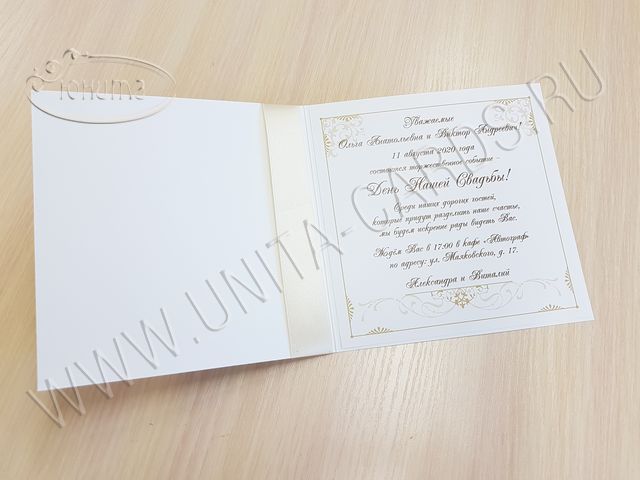 Юнита
WWW.UNITA-CARDS.RU
Уважаемые
Ольга Анатольевна и Виктор Андреевич!
11 августа 2020 года
состоится торжественное событие –
День Нашей Свадьбы!
Среди наших дорогих гостей,
которые придут разделить наше счастье,
мы будем искренне рады видеть Вас.
Ждём Вас в 17:00 в кафе «Автограф»
по адресу: ул. Маяковского, д. 17.
Александра и Виталий